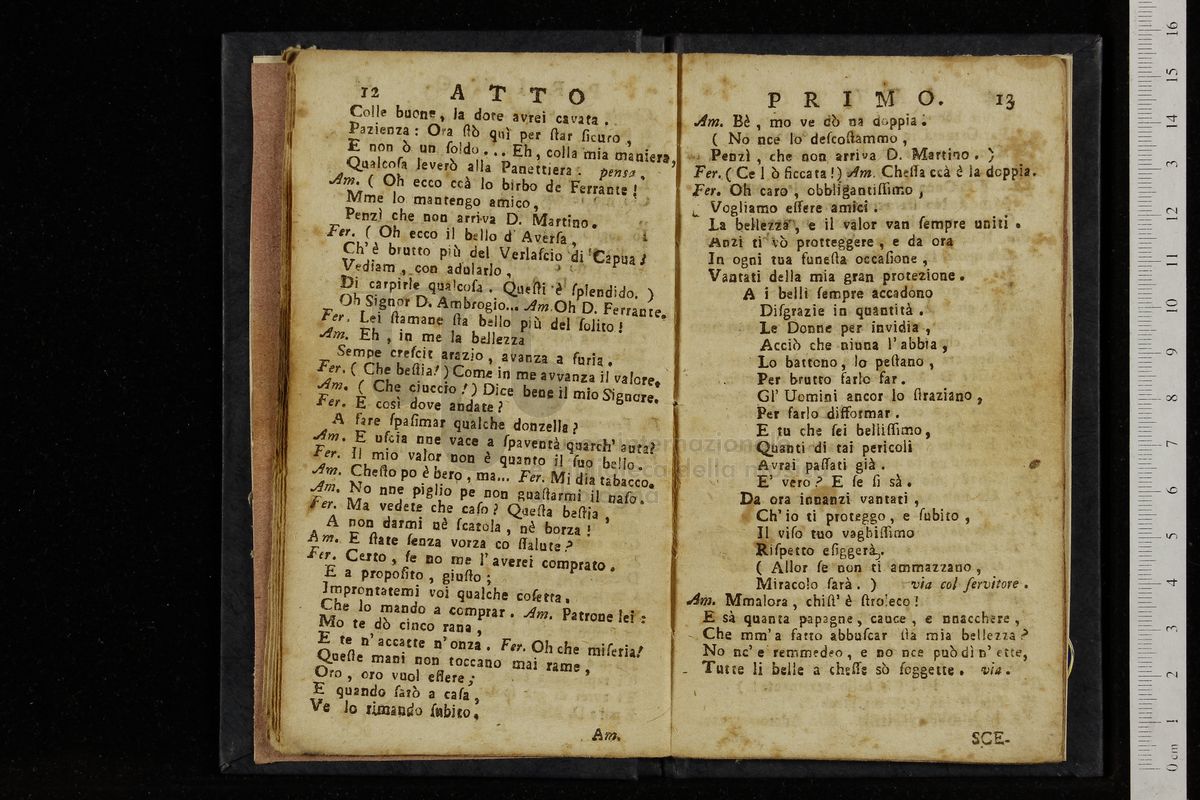 12 ATTO
Colle buone, la dote avrei cavata.
Pazienza: Ora ſtò quì per ſtar ſicuro,
E non ò un ſoldo... Eh, colla mia maniera,
Qualcoſa leverò alla Panettiera. penſa,
Am. ( Oh ecco ccà lo birbo de Ferrante!
Mme lo mantengo amico,
Penzì che non arriva D. Martino.
Fer. ( Oh ecco il bello d'Averſa,
Ch'è brutto più del Verlaſcio di Capua!
Vediam, con adularlo,
Di carpirle qualcoſa. Queſti è ſplendido. )
Oh Signor D. Ambrogio... Am. Oh D. Ferrante.
Fer. Lei ſtamane ſta bello più del ſolito!
Am. Eh, in me la bellezza
Sempe creſcit arazio, avanza a furia.
Fer. ( Che beſtia! ) Come in me avvanza il valore.
Am. ( Che ciuccio! ) Dice bene il mio Signore.
Fer. E così dove andate?
A fare ſpaſimar qualche donzella?
Am. E uſcia nne vace a ſpaventà quarch' auta?
Fer. Il mio valor non è quanto il ſuo bello.
Am. Cheſto po è bero, ma... Fer. Mi dia tabacco.
Am. No nne piglio pe non guaſtarmi il naſo.
Fer. Ma vedete che caſo? Queſta beſtia,
A non darmi nè ſcatola, nè borza!
Am. E ſtate ſenza vorza co ſſalute?
Fer. Certo, ſe no me l'averei comprato.
E a propoſito, giuſto;
Improntatemi voi qualche coſetta.
Che lo mando a comprar. Am. Patrone lei:
Mo te dò cinco rana,
E te n'accatte n'onza. Fer. Oh che miſeria!
Queſte mani non toccano mai rame,
Oro, oro vuol eſſere;
E quando ſarò a caſa,
Ve lo rimando ſubito.
Am.
PRIMO. 13
Am. Bè, mo ve dò na doppia.
( No nce lo deſcoſtammo,
Penzì, che non arriva D. Martino. )
Fer. ( Ce l ò ficcata! ) Am. Cheſſa ccà è la doppia.
Fer. Oh caro, obbligantiſſimo,
Vogliamo eſſere amici.
La bellezza, e il valor van ſempre uniti.
Anzi ti vò protteggere, e da ora
In ogni tua funeſta occaſione,
Vantati della mia gran protezione.
A i belli ſempre accadono
Diſgrazie in quantità.
Le Donne per invidia,
Acciò che niuna l'abbia,
Lo battono, lo peſtano,
Per brutto farlo far.
Gl' Uomini ancor lo ſtraziano,
Per farlo difformar.
E tu che ſei belliſſimo,
Quanti di tai pericoli
Avrai paſſati già.
E' vero? E ſe ſi sà.
Da ora innanzi vantati,
Ch'io ti proteggo, e ſubito,
Il viſo tuo vaghiſſimo
Riſpetto eſiggerà.
( Allor ſe non ti ammazzano,
Miracolo ſarà. ) via col ſervitore.
Am. Mmalora, chiſt' è ſtroleco!
E sà quanta papagne, cauce, e nnacchere,
Che mm'a fatto abbuſcar ſta mia bellezza?
No nc'e remmedeo, e no nce può dì n'ette,
Tutte li belle a cheſſe sò ſoggette. via.
SCE-